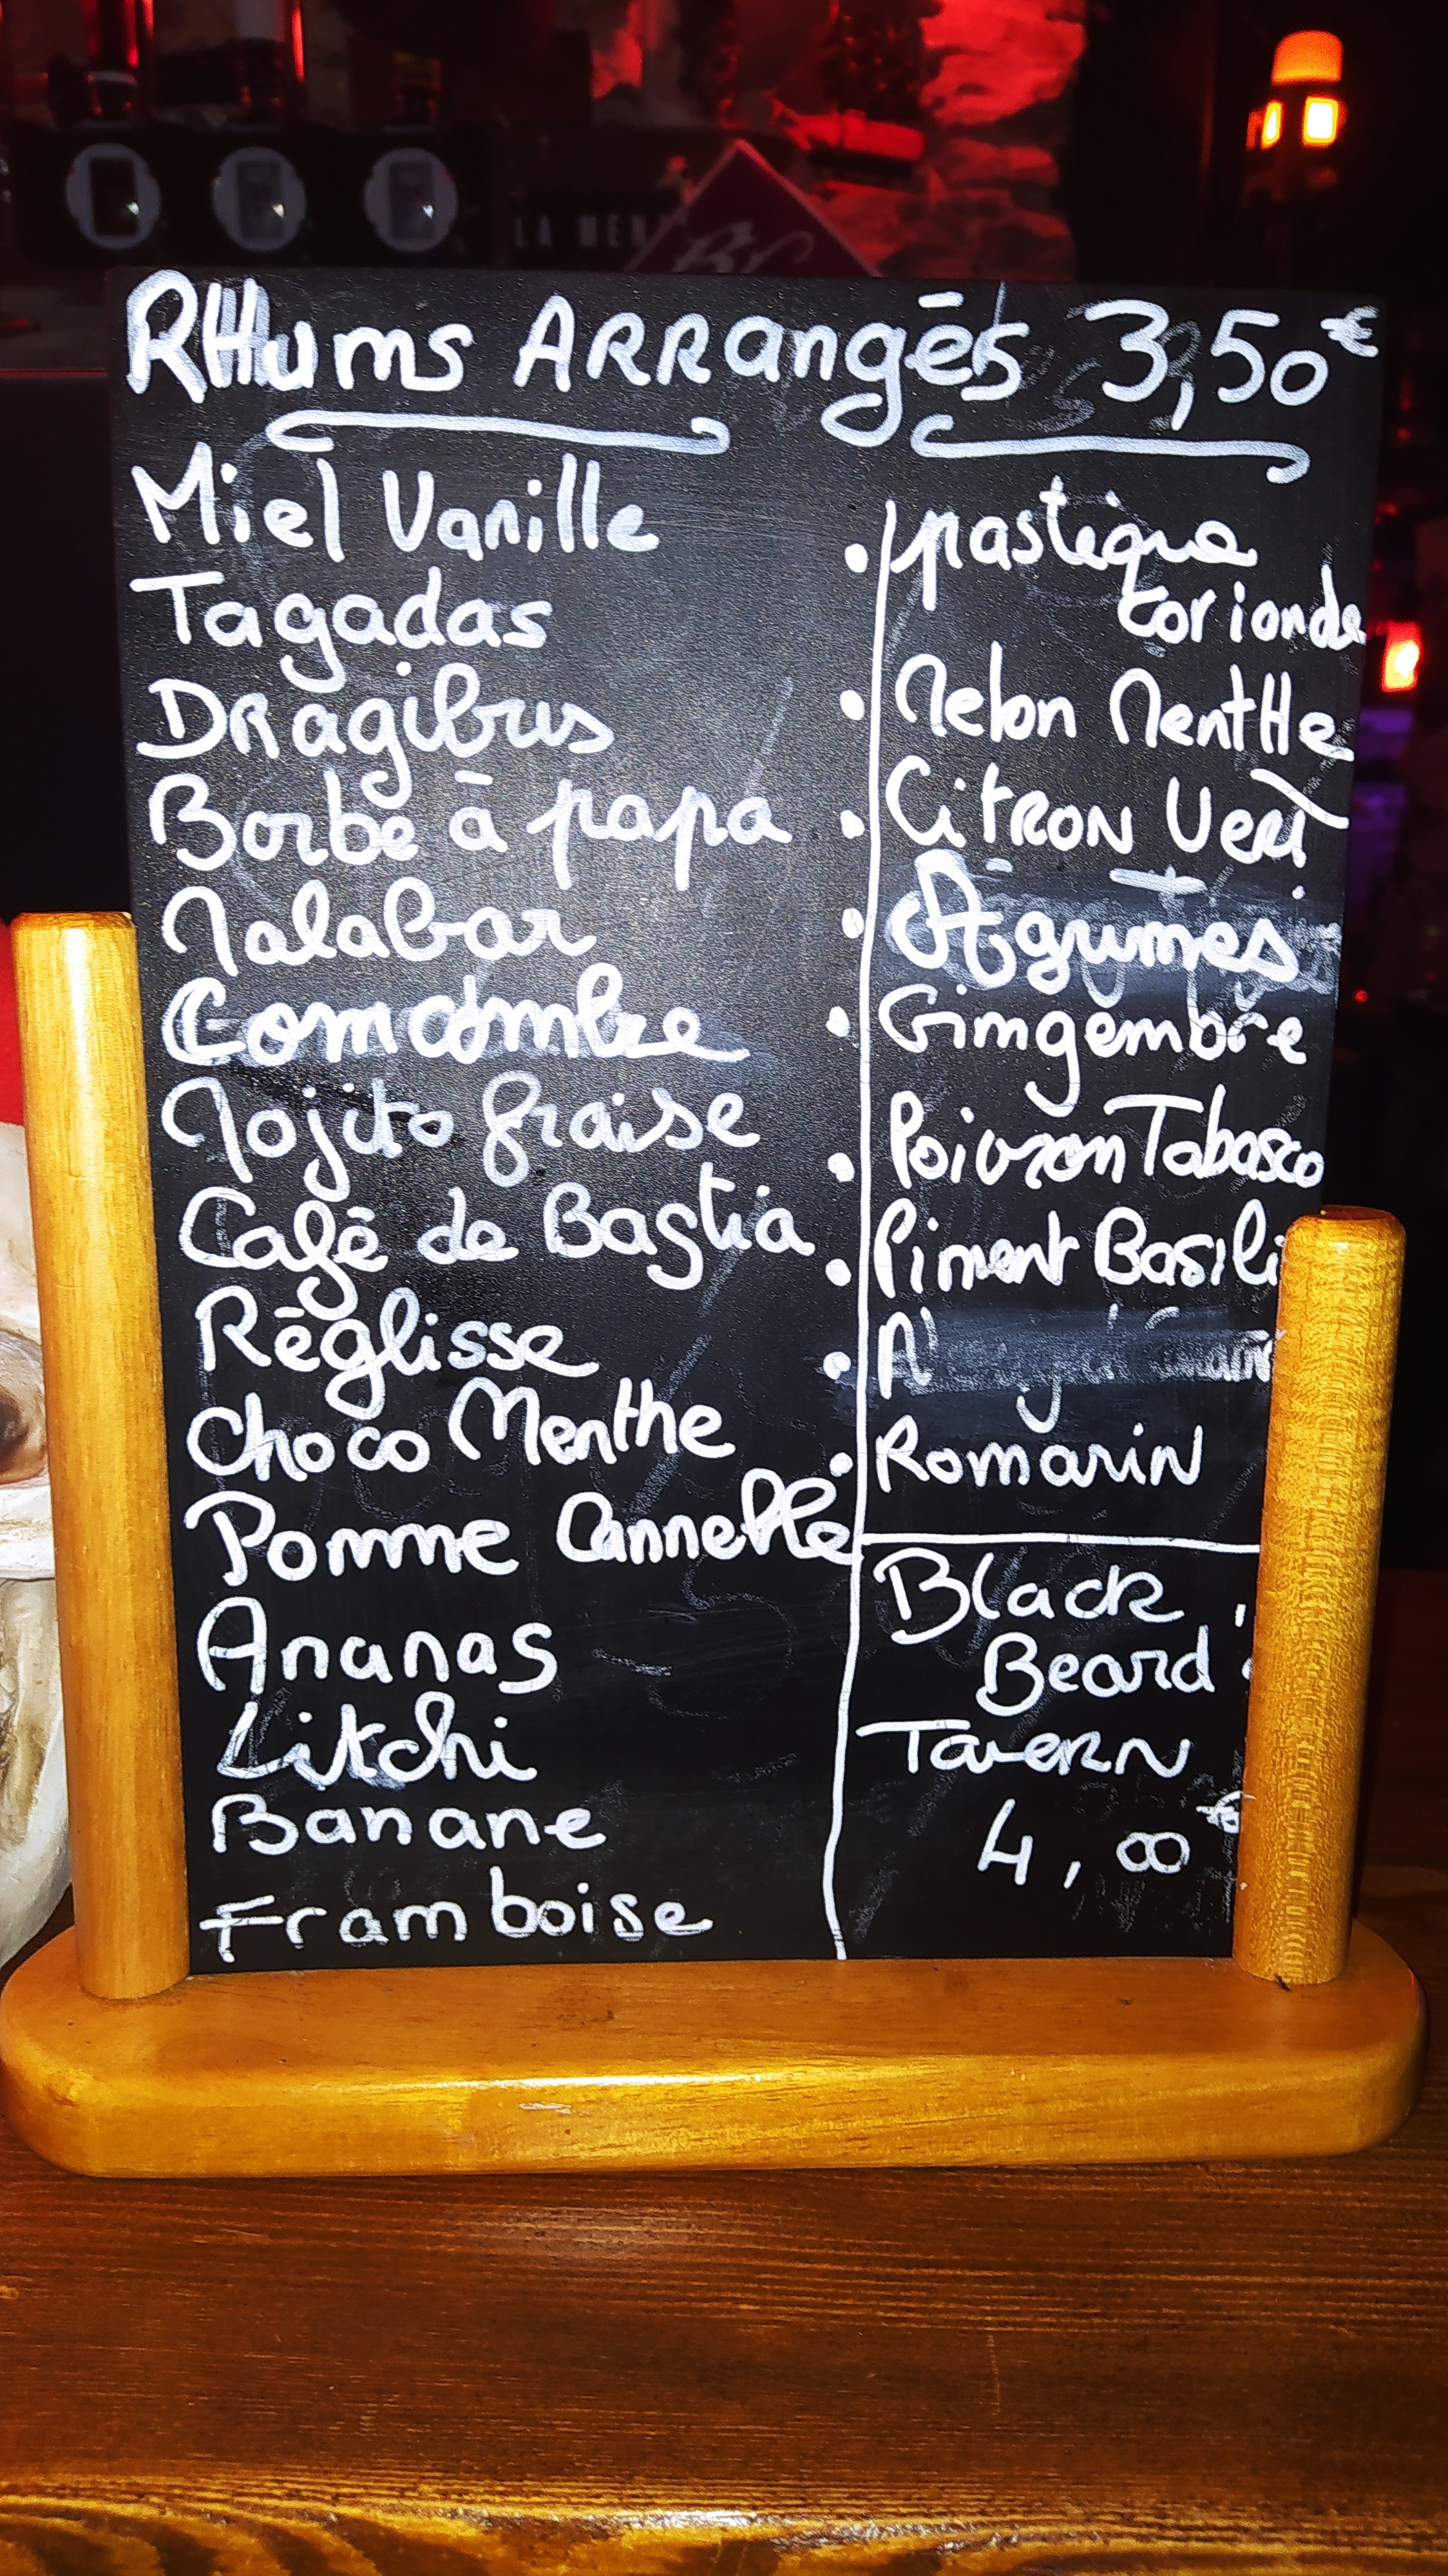 RHums ARRangés 3,50€
Miel Vanille
Tagadas
DRagibus
Barbe à papa
Malabar
Comcombre
Mojito fraise
Café de Bastia
Réglisse
Choco Menthe
Pomme Cannelle
Ananas
Litchi
Banane
Framboise
• pastèque
coriande
• Melon MentHe
• CitRON VeRT
• Agrumes
• Gimgembre
• Poivron Tabasco
• Piment Basili
• Romarin
Black
Beard
TaveRN
4,00€
LA MEN